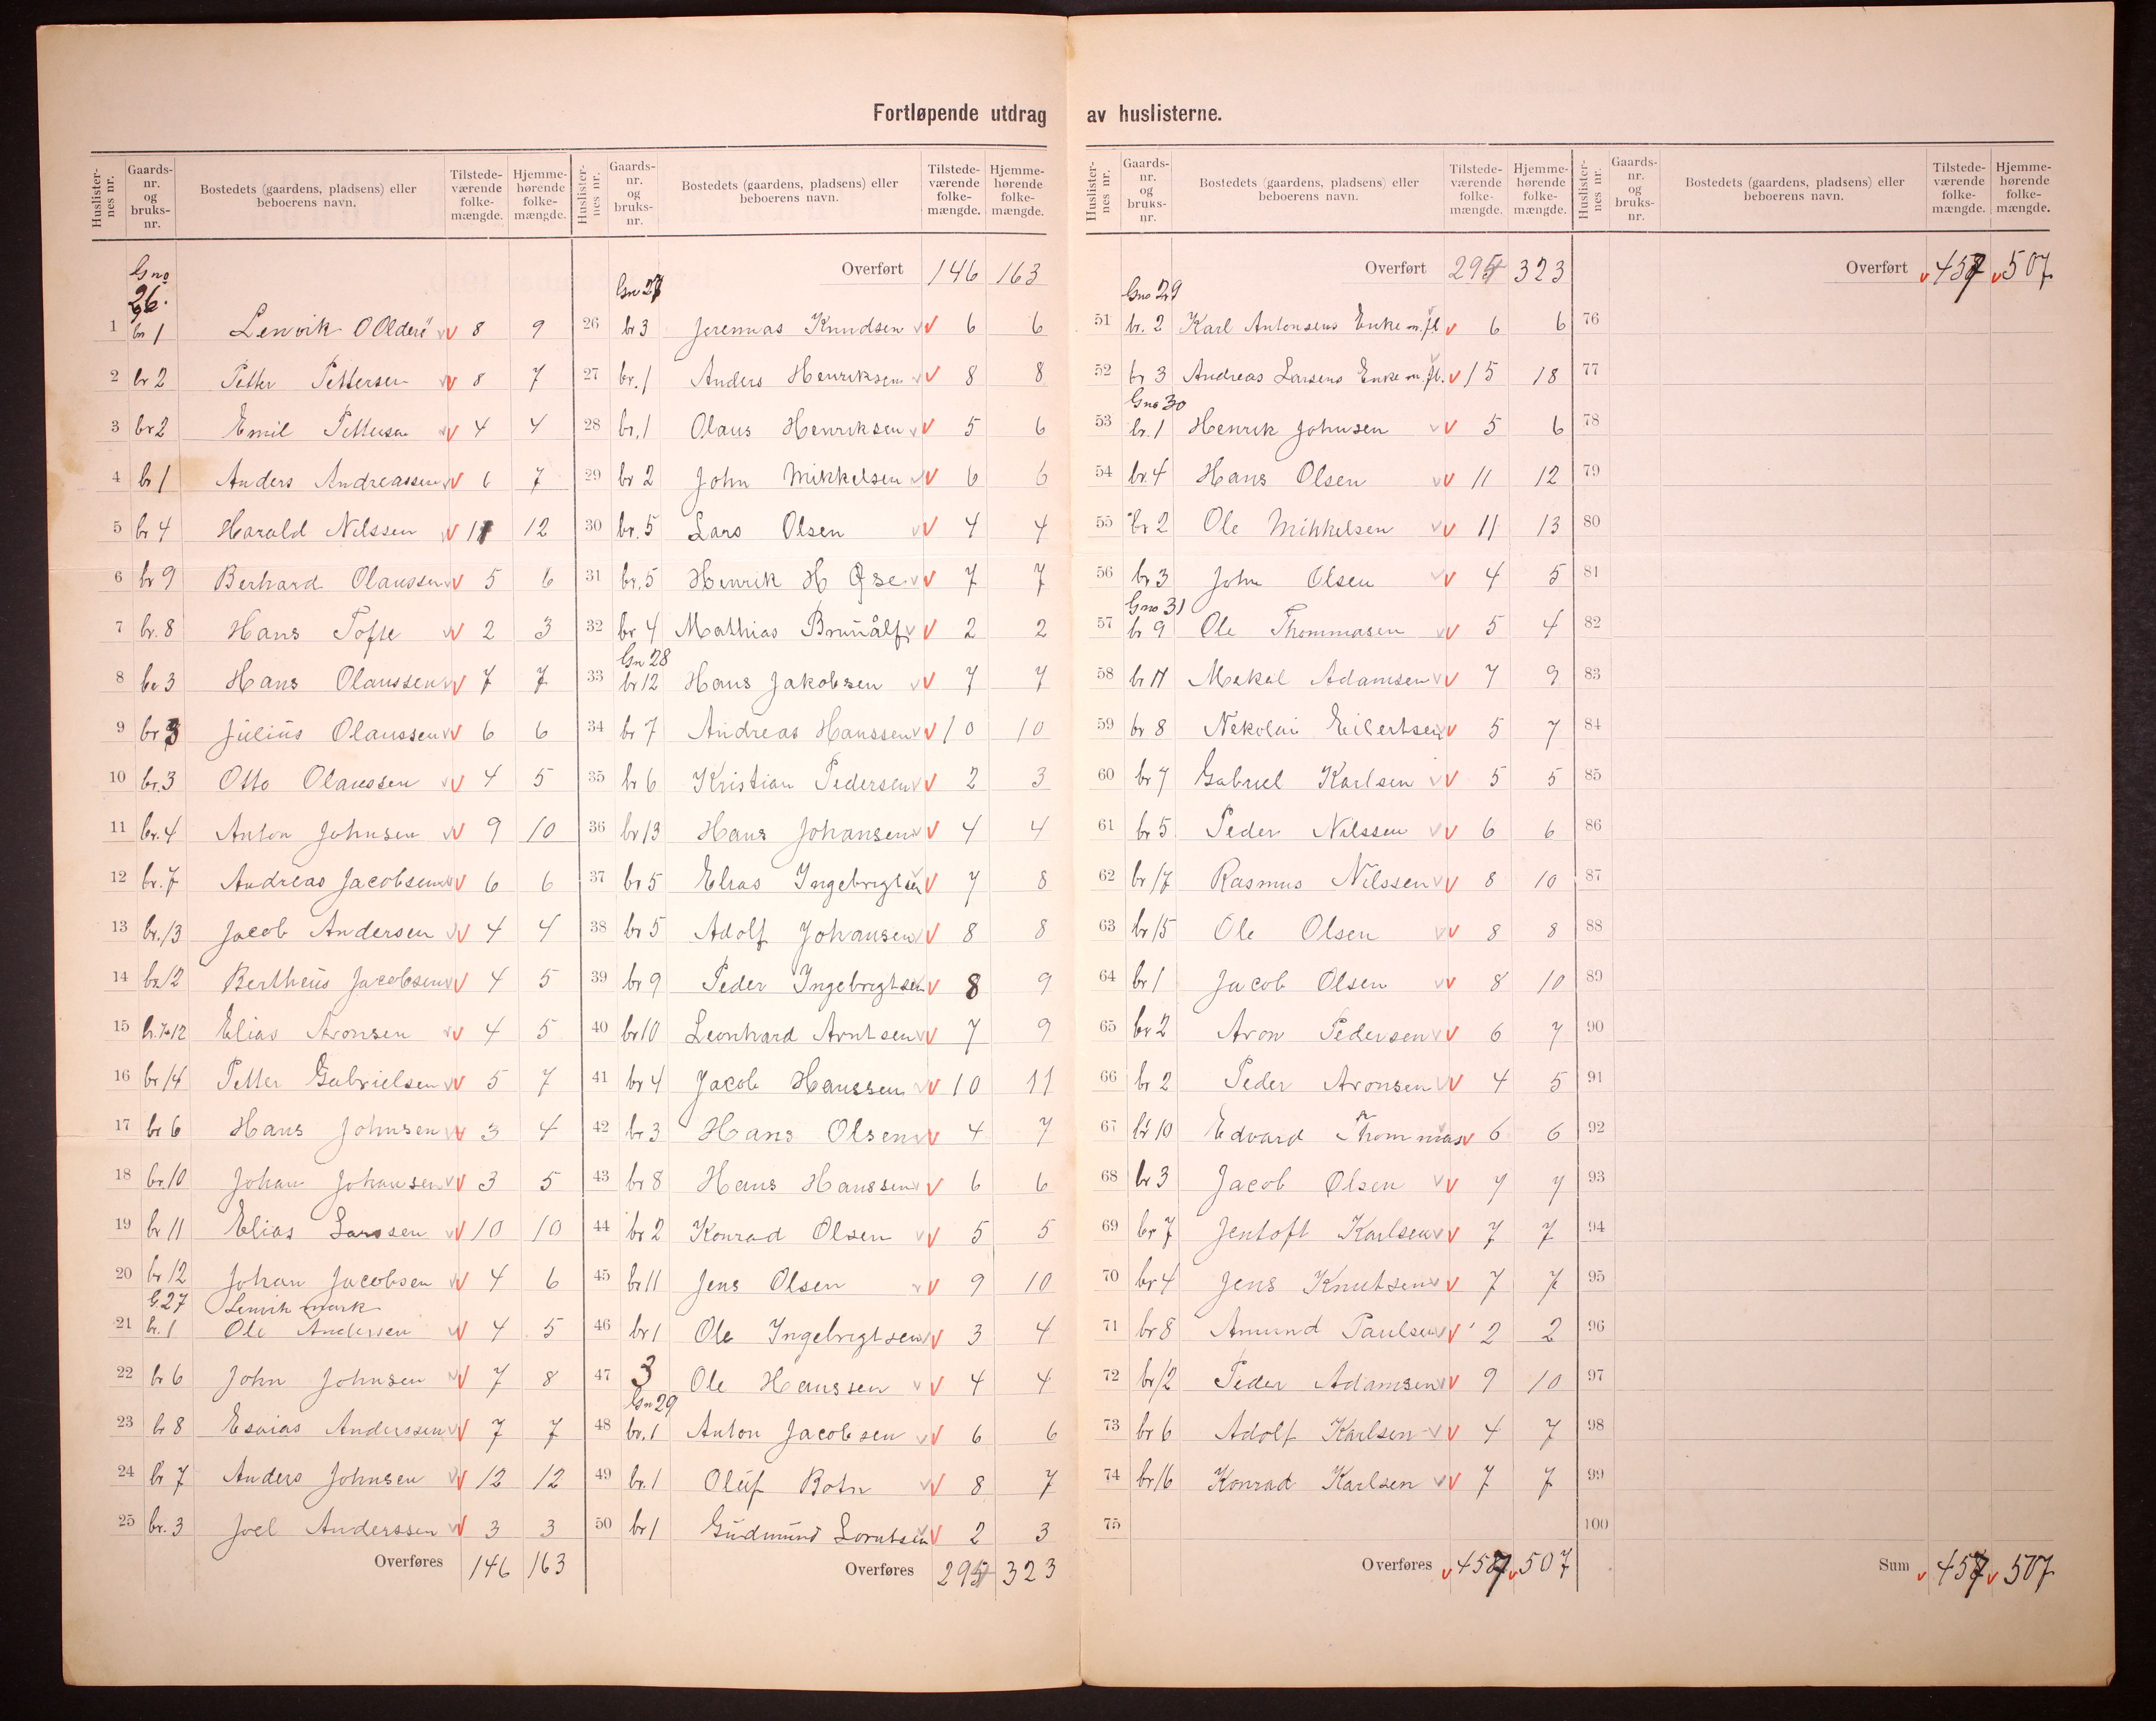 Fortløpende utdrag av huslisterne.
Huslister-nes nr. Gaards-nr. og bruks-nr. Bostedets (gaardens, pladsens) eller beboerens navn. Tilstede-værende folke-mængde. Hjemme-hørende folke-mængde.
Gno 26.
1 br 1 Lenvik O Olderö 8 9
2 br 2 Petter Pettersen 8 7
3 br 2 Emil Pettersen 4 4
4 br 1 Anders Andreassen 6 7
5 br 4 Harald Nilssen 11 12
6 br 9 Berhard Olaussen 5 6
7 br. 8 Hans Tofte 2 3
8 br 3 Hans Olaussen 7 7
9 br 3 Julius Olaussen 6 6
10 br. 3 Otto Olaussen 4 5
11 br. 4 Anton Johnsen 9 10
12 br. 7 Andreas Jacobsen 6 6
13 br. 13 Jacob Andersen 4 4
14 br. 12 Bertheus Jacobsen 4 5
15 br. 7 12 Elias Aronsen 4 5
16 br 14 Petter Gabrielsen 5 7
17 br 6 Hans Johnsen 3 4
18 br. 10 Johan Johansen 3 5
19 br 11 Elias Larssen 10 10
20 br 12 Johan Jacobsen 4 6
G. 27 Lenvik mark
21 br. 1 Ole Andersen 4 5
22 br 6 John Johnsen 7 8
23 br 8 Esaias Anderssen 7 7
24 br 7 Anders Johnsen 12 12
25 br. 3 Joel Anderssen 3 3
Overføres 146 163
Huslister-nes nr. Gaards-nr. og bruks-nr. Bostedets (gaardens, pladsens) eller beboerens navn. Tilstede-værende folke-mængde. Hjemme-hørende folke-mængde.
Overført 146 163
Gn 27
26 br 3 Jeremias Knudsen 6 6
27 br. 1 Anders Henriksen 8 8
28 br. 1 Olaus Henriksen 5 6
29 br 2 John Mikkelsen 6 6
30 br. 5 Lars Olsen 4 4
31 br. 5 Henrik H 7 7
32 br 4 Mathias 2 2
Gn 28
33 br 12 Hans Jakobsen 7 7
34 br 7 Andreas Hanssen 10 10
35 br 6 Kristian Pedersen 2 3
36 br 13 Hans Johansen 4 4
37 br 5 Elias Ingebrigtsen 7 8
38 br 5 Adolf Johansen 8 8
39 br 9 Peder Ingebrigtsen 8 9
40 br 10 Leonhard Arntsen 7 9
41 br 4 Jacob Hanssen 10 11
42 br 3 Hans Olsen 4 7
43 br 8 Hans Hanssen 6 6
44 br 2 Konrad Olsen 5 5
45 br 11 Jens Olsen 9 10
46 br 1 Ole Ingebrigtsen 3 4
47 3 Ole Hanssen 4 4
Gn 29
48 br. 1 Anton Jacobsen 6 6
49 br. 1 Oluf Botn 8 7
50 br 1 Gudmund Lorntsen 2 3
Overføres 295 323
Huslister-nes nr. Gaards-nr. og bruks-nr. Bostedets (gaardens, pladsens) eller beboerens navn. Tilstede-værende folke-mængde. Hjemme-hørende folke-mængde.
Overført 295 323
Gno 29
51 br. 2 Karl Antonsens Enke m. fl 6 6
52 br 3 Andreas Larsens Enke m. fl. 15 18
Gno 30
53 br. 1 Henrik Johnsen 5 6
54 br. 4 Hans Olsen 11 12
55 br 2 Ole Mikkelsen 11 13
56 br 3 John Olsen 4 5
Gno 31
57 br 9 Ole Thommasen 5 4
58 br 11 Mekal Adamsen 7 9
59 br 8 Nekolai Eilertsen 5 7
60 br 7 Gabriel Karlsen 5 5
61 br 5 Peder Nilssen 6 6
62 br 17 Rasmus Nilssen 8 10
63 br 15 Ole Olsen 8 8
64 br 1 Jacob Olsen 8 10
65 br 2 Aron Pedersen 6 7
66 br 2 Peder Aronsen 4 5
67 br 10 Edvard Thommas 6 6
68 br 3 Jacob Olsen 7 7
69 br 7 Jentoft Karlsen 7 7
70 br 4 Jens Knutsen 7 7
71 br 8 Amund Paulsen 2 2
72 br 12 Peder Adamsen 9 10
73 br 6 Adolf Karlsen 4 7
74 br 16 Konrad Karlsen 7 7
75
Overføres 457 507
Huslister-nes nr. Gaards-nr. og bruks-nr. Bostedets (gaardens, pladsens) eller beboerens navn. Tilstede-værende folke-mængde. Hjemme-hørende folke-mængde.
Overført 457 507
76
77
78
79
80
81
82
83
84
85
86
87
88
89
90
91
92
93
94
95
96
97
98
99
100
Sum 457 507